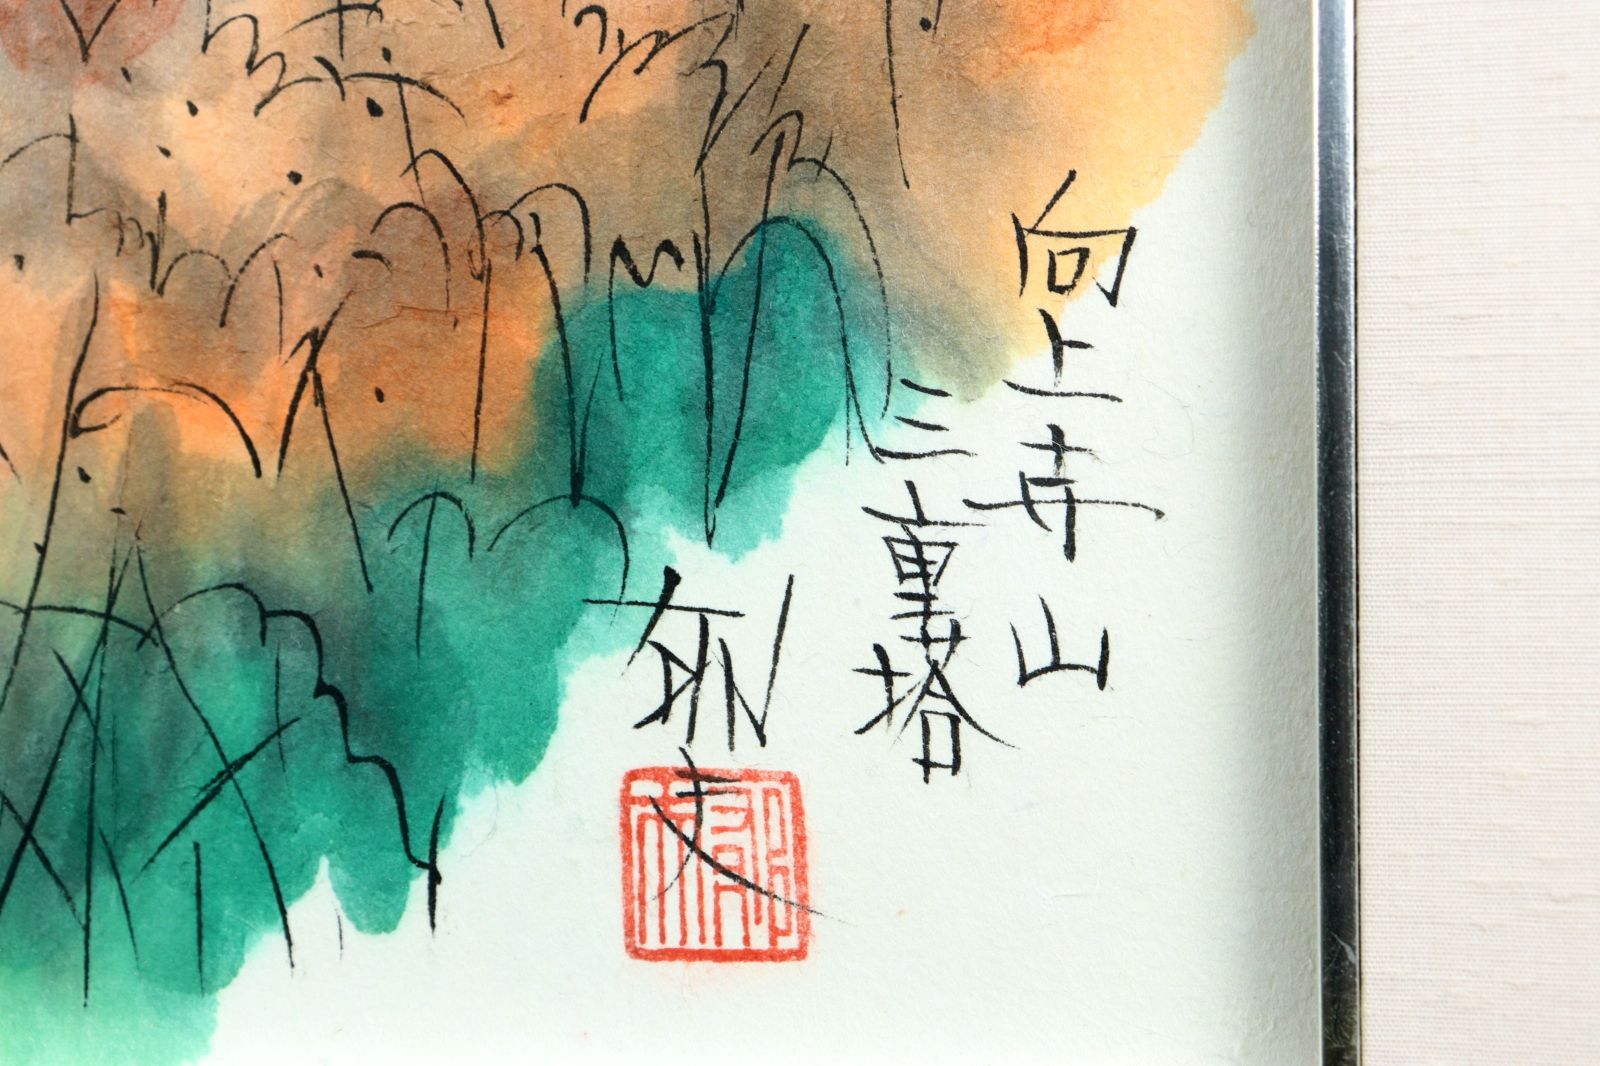 向上寺山
三重塔
郁夫